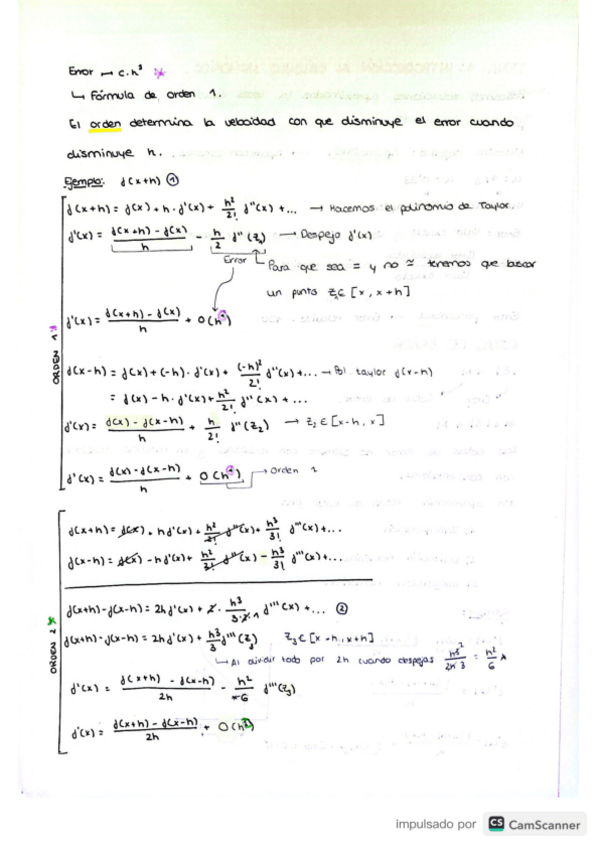 Error → c.h¹ *
↳ Fórmula de orden 1.
El orden determina la velocidad con que disminuye el error cuando
disminuye h.
Ejemplo: f(x+h) ①
f(x+h) = f(x) + h · f'(x) + h²/2! f''(x) + ... → Hacemos el polinomio de Taylor.
f'(x) = (f(x+h) - f(x))/h - h/2 f''(z₁) → Despejo f'(x)
Error ↳ Para que sea = y no ≃ tenemos que buscar
un punto z₁∈ [x, x+h]
f'(x) = (f(x+h) - f(x))/h + O(h¹)
ORDEN 1*
f(x-h) = f(x) + (-h) · f'(x) + (-h)²/2! f''(x) + ... → Pol. taylor f(x-h)
= f(x) - h · f'(x) + h²/2! f''(x) + ...
f'(x) = (f(x) - f(x-h))/h + h/2! f''(z₂) → z₂∈ [x-h, x]
f'(x) = (f(x) - f(x-h))/h + O(h¹) → Orden 1
f(x+h) = f(x) + h f'(x) + h²/2! f''(x) + h³/3! f'''(x) + ...
f(x-h) = f(x) - h f'(x) + h²/2! f''(x) - h³/3! f'''(x) + ...
f(x+h) - f(x-h) = 2h f'(x) + 2 · h³/3·2·1 f'''(x) + ... ②
f(x+h) - f(x-h) = 2h f'(x) + h³/3 f'''(z₃) z₃∈ [x-h, x+h]
ORDEN 2*
↳ Al dividir todo por 2h cuando despejas h³/2h·3 = h²/6
f'(x) = (f(x+h) - f(x-h))/2h - h²/6 f'''(z₃)
f'(x) = (f(x+h) - f(x-h))/2h + O(h²)
impulsado por CS CamScanner